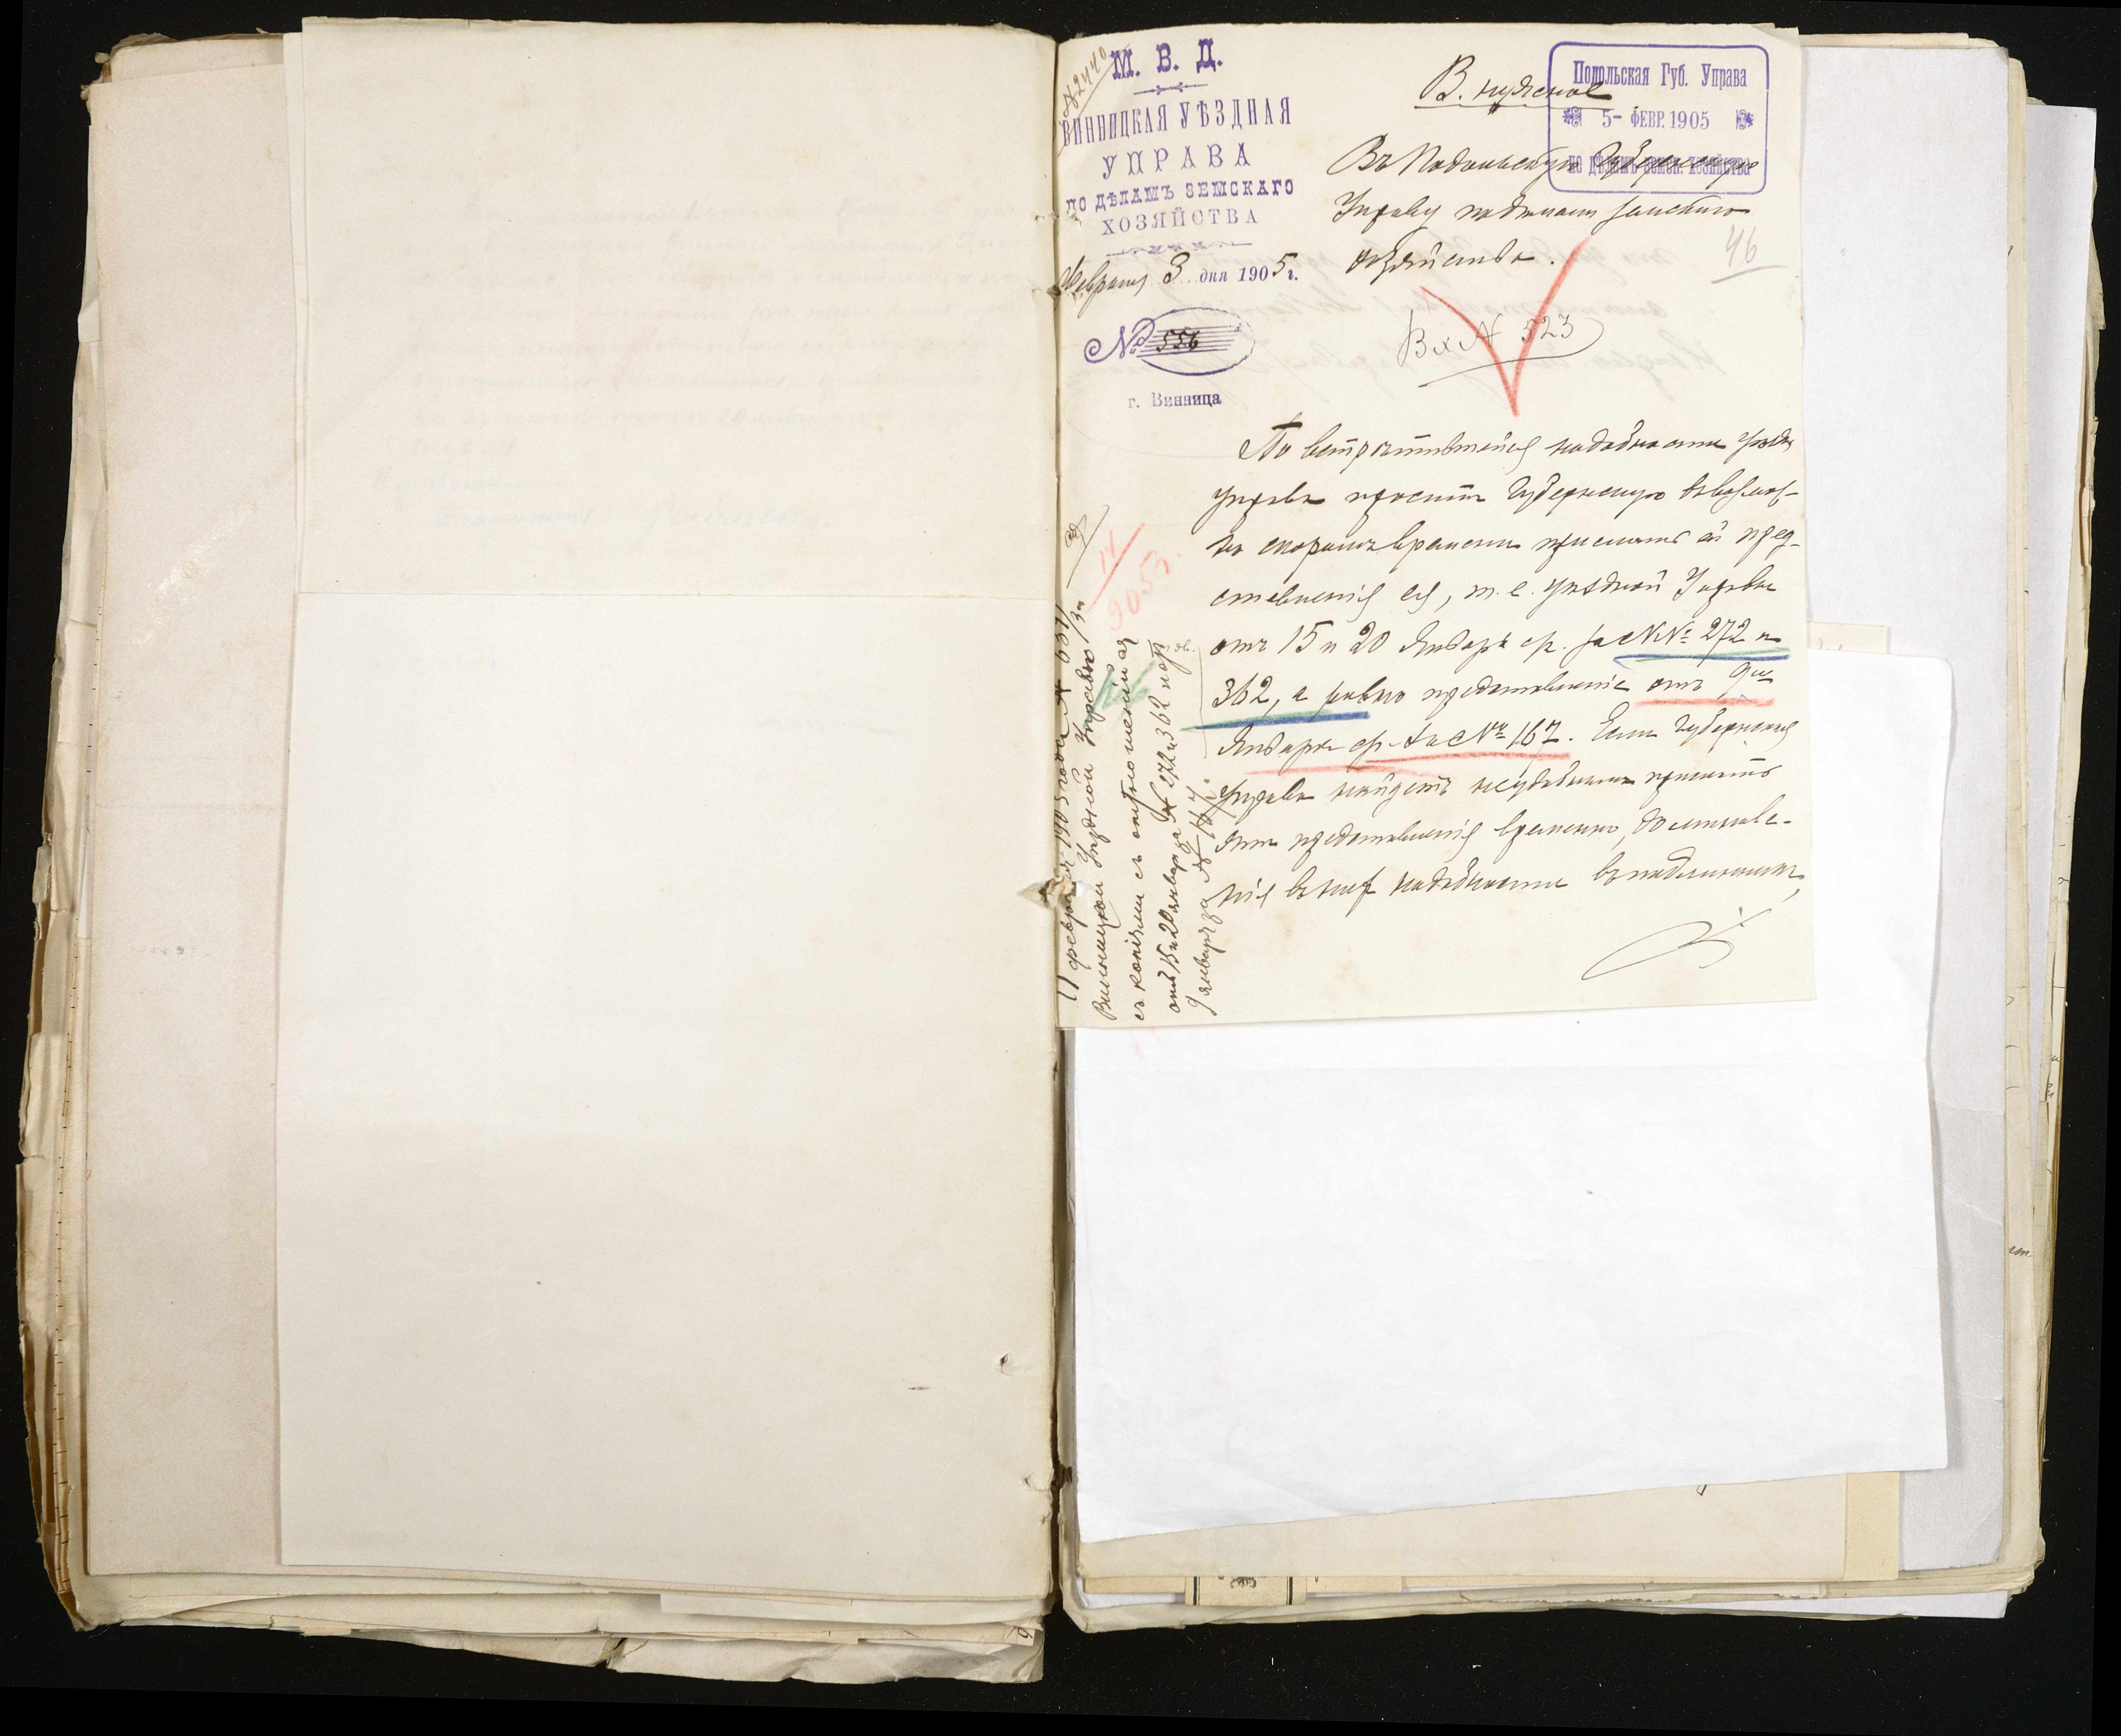 № 2440
М. В. Д.
ВИННИЦКАЯ УѢЗДНАЯ
УПРАВА
ПО ДѢЛАМЪ ЗЕМСКАГО
ХОЗЯЙСТВА
Февраля 3 дня 1905 г.
№ 556
г. Винница
В. нужное
Подольская Губ. Управа
5- ФЕВР. 1905
по дѣламъ земск. хозяйства
Въ Подольскую Губернскую
Управу по дѣламъ земскаго
хозяйства.
46
Вх № 523
По встрѣтившейся надобности уѣздн
управа проситъ Губернскую въ возмож-
но скоромъ времени прислать ей пред-
ставленія ея, т. е. уѣздной Управы
отъ 15 и 20 Января ср. за №№ 272 и
362, а равно представленіе отъ 9го
Января ср. за № 167. Если Губернская
Управа найдетъ неудобнымъ прислать
эти представленія временно, до минова-
нія въ нихъ надобности въ подлинникѣ,
11 февраля 1905 года № 651
Винницкой Уѣздной Управѣ
съ копіями съ отношенія ея
отъ 15 и 20 января № 272 и 362 и
9 января за № 167.